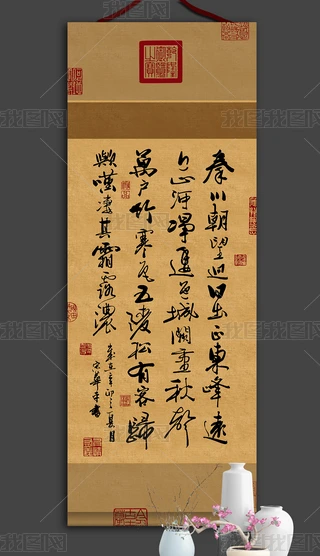 秦川朝望迥日出正東峰遠
近山河淨逶迤城闕重秋聲
萬戶竹寒色五陵松有客歸
歟嘆淒其霜露濃
歲在辛卯之夏月
我图网